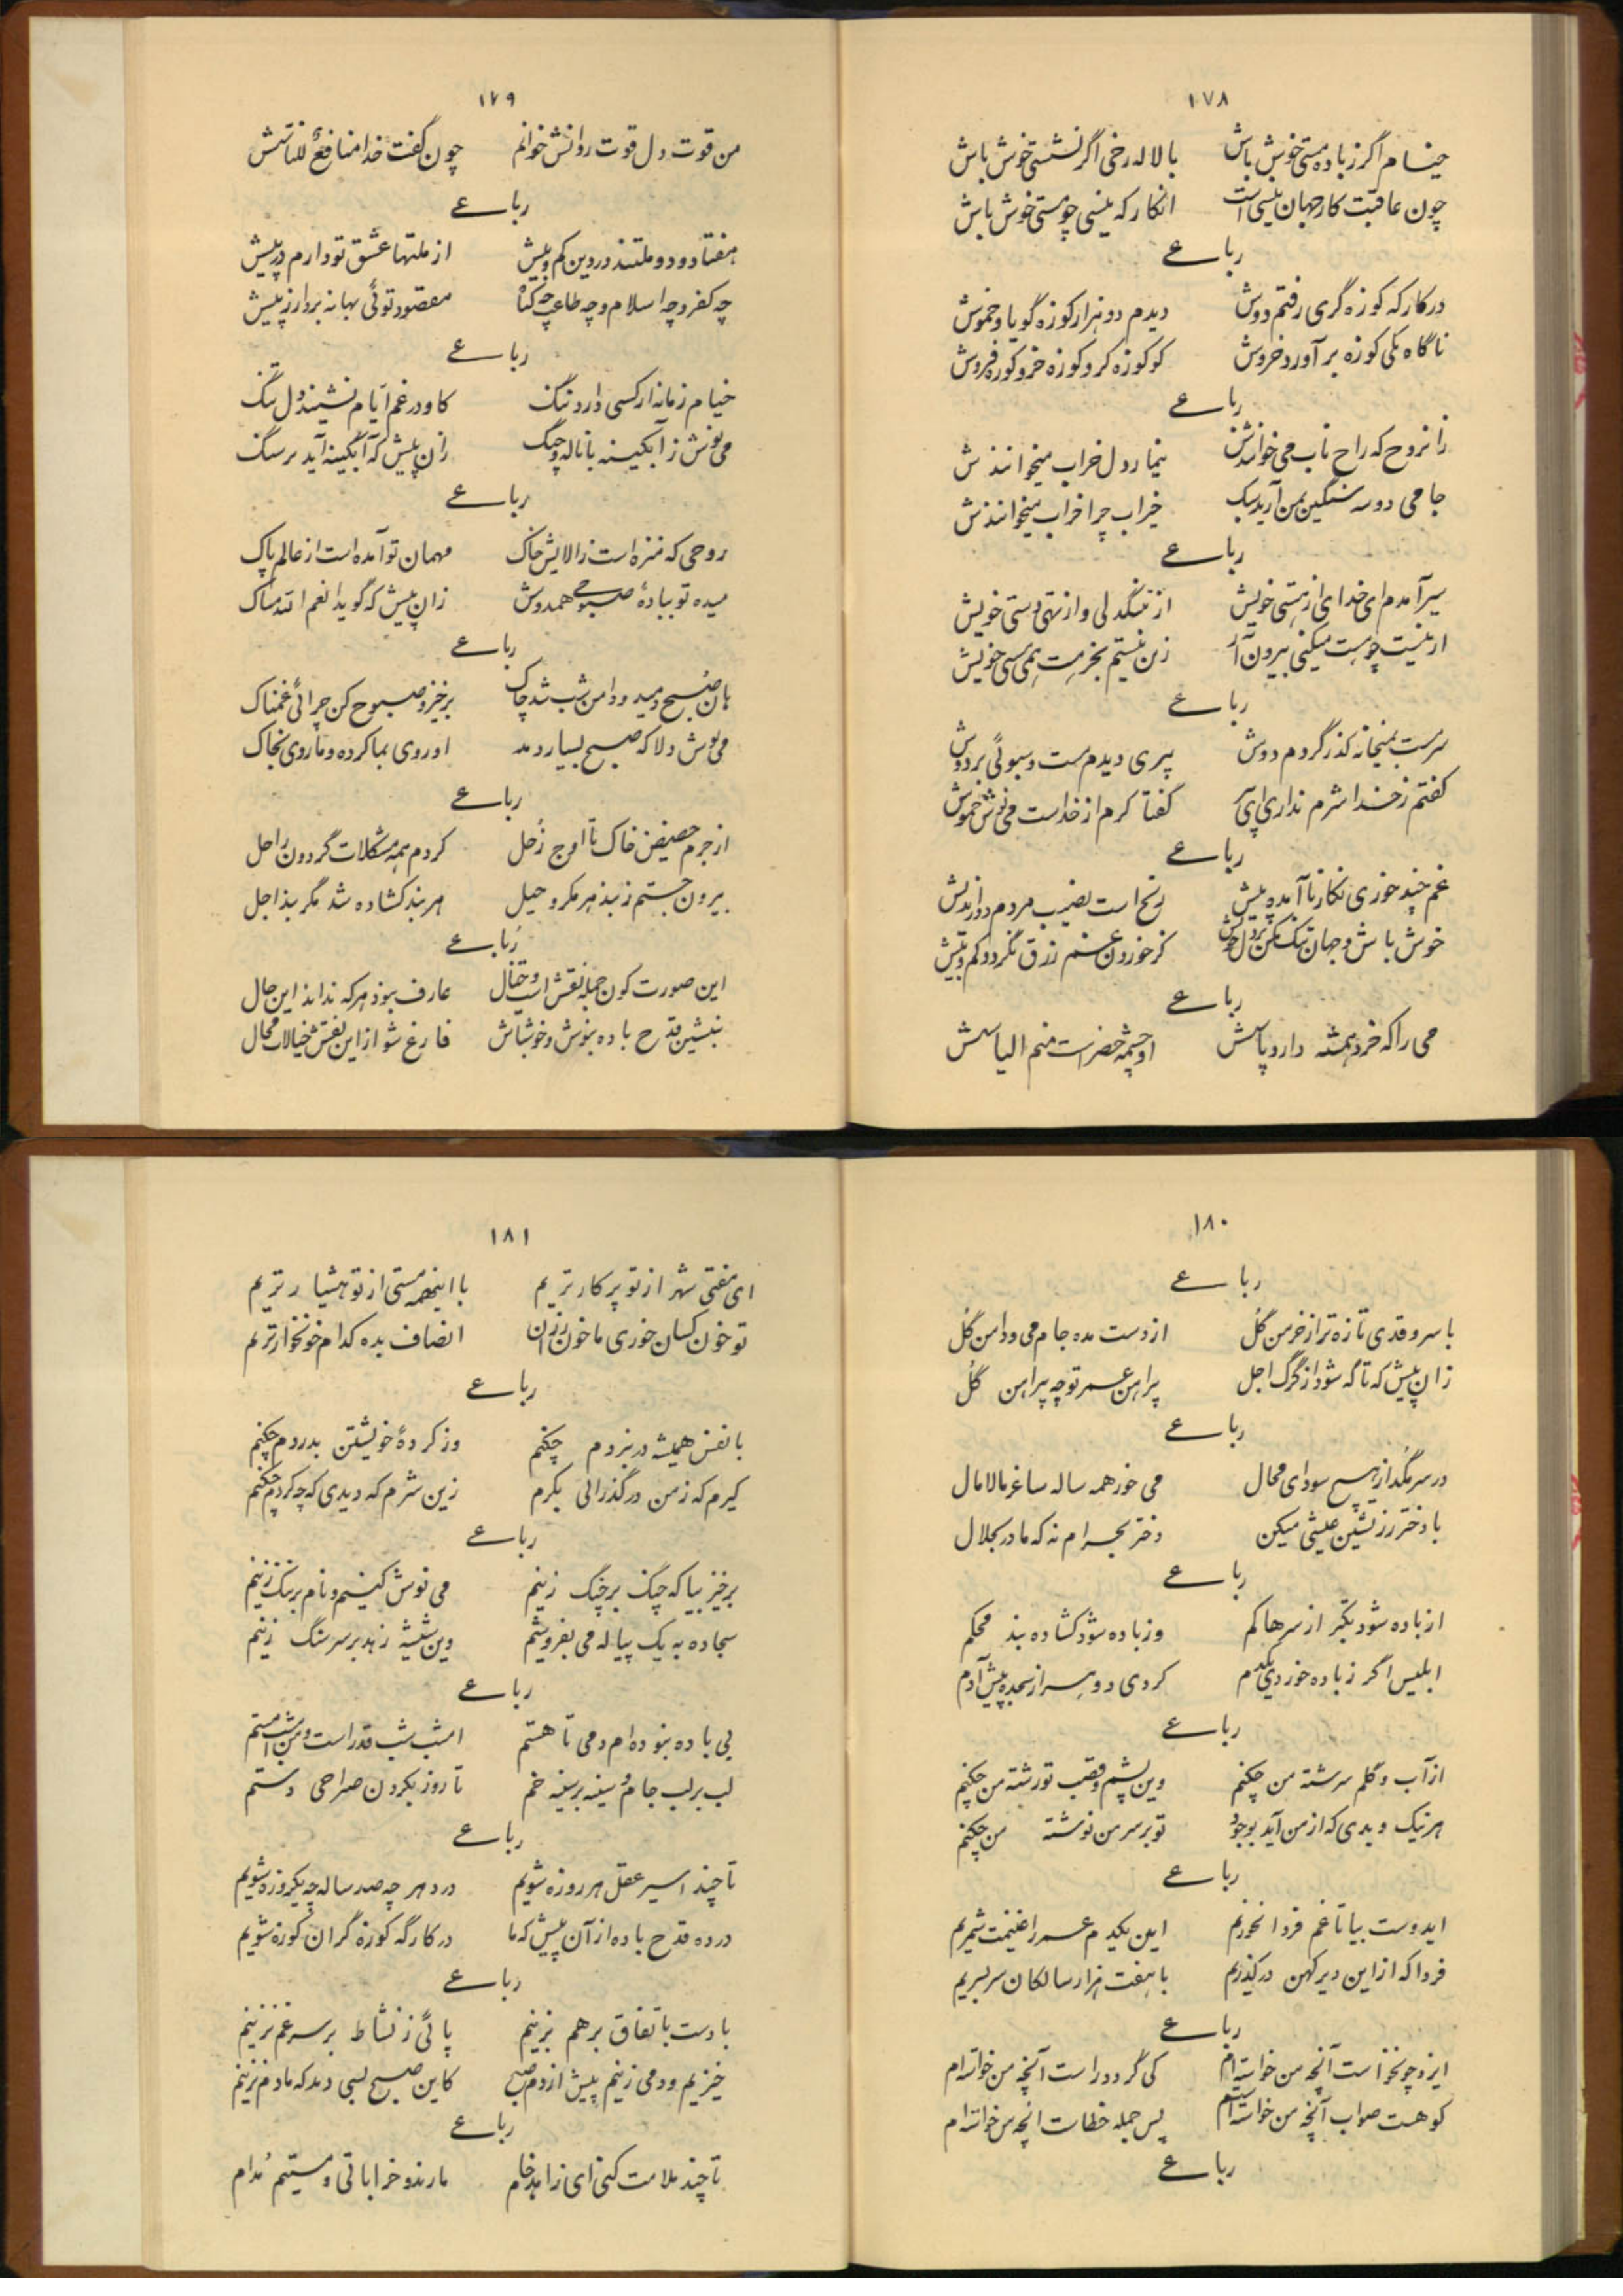 ۱۷۸
خیام اگر ز باده مستی خوش باش با لاله رخی اگر نشستی خوش باش
چون عاقبت کار جهان نیستی است انگار که نیستی چو هستی خوش باش
رباعے
در کارکه کوزه گری رفتم دوش دیدم دو هزار کوزه گویا و خموش
ناگاه یکی کوزه برآورد خروش کو کوزه کر و کوزه خر و کوزه فروش
رباعے
زانروح که راح ناب می خوانندش تیمار دل خراب میخوانندش
جامی دو سه سنگین بمن آرید سبک خیراب چرا خراب میخوانندش
رباعے
سیر آمدم ای خدای از هستی خویش از تنگدلی و از تهی دستی خویش
از نیست چو هست میکنی بیرون آر زین نیستیم بحرمت هستی خویش
رباعے
سرمست بمیخانه گذر کردم دوش پیری دیدم مست و سبوئی بر دوش
گفتم ز خدا شرم نداری ای پیر گفتا کرم از خداست می نوش خموش
رباعے
غم چند خوری بکار ناآمده پیش رنج است نصیب مردم دوراندیش
خوش باش و جهان تنگ مکن بر دل خویش کز خوردن غم رزق نگردد کم و بیش
رباعے
می را که خرد همیشه دارد پاسش او چشمه خضر است منم الیاسش
۱۷۹
من قوت دل قوت روانش خوانم چون گفت خدا منافعٌ للناسش
رباعے
هفتاد و دو ملتند در دین کم و بیش از ملتها عشق تو دارم در پیش
چه کفر و چه اسلام و چه طاعت چه گناه مقصود توئی بهانه بردار ز پیش
رباعے
خیام زمانه از کسی دارد ننگ کاو در غم ایام نشیند دل تنگ
می نوش ز آبگینه با ناله چنگ زان پیش که آبگینه آید بر سنگ
رباعے
روحی که منزه است ز آلایش خاک مهمان تو آمده است از عالم پاک
میده تو بباده صبوحی همدوش زان پیش که گوید انعم الله مساک
رباعے
هان صبح دمید و دامن شب شد چاک برخیز و صبوح کن چرائی غمناک
می نوش دلا که صبح بسیار دمد او روی بما کرده و ما روی بخاک
رباعے
از جرم حضیض خاک تا اوج زُحل کردم همه مشکلات گردون را حل
بیرون جستم ز بند هر مکر و حیل هر بند کشاده شد مگر بند اجل
رباعے
این صورت کون جمله نقش است و خیال عارف نبود هر که نداند این حال
بنشین قدح باده بنوش و خوشباش فارغ شو از این نقش خیالات محال
۱۸۰
رباعے
با سرو قدی تازه تر از خرمن گُل از دست مده جام می و دامن گُل
زان پیش که ناگه شود از گرگ اجل پیراهن عمر تو چه پیراهن گُل
رباعے
در سر مگذار هیچ سودای محال می خور همه ساله ساغر مالامال
با دختر رز نشین عیشی میکن دختر بحرام نه که مادر بحلال
رباعے
از باده شود تکبر از سرها کم وز باده شود کشاده بند محکم
ابلیس اگر ز باده خوردی یکدم کردی دو هزار سجده پیش آدم
رباعے
از آب و گلم سرشته من چکنم وین پشم و قصب تو رشته من چکنم
هر نیک و بدی که از من آید بوجود تو بر سر من نوشته من چکنم
رباعے
ایدوست بیا تا غم فردا نخوریم این یکدم عمر را غنیمت شمریم
فردا که از این دیر کهن درگذریم با هفت هزار سالکان سر بسریم
رباعے
ایزد چو نخواست آنچه من خواسته ام کی گردد راست آنچه من خواسته ام
کر هست صواب آنچه من خواسته ام پس جمله خطاست آنچه من خواسته ام
رباعے
۱۸۱
ای مفتی شهر از تو پرکارتریم با اینهمه مستی از تو هشیارتریم
تو خون کسان خوری ما خون رزان انصاف بده کدام خونخوارتریم
رباعے
با نفس همیشه در نبردم چکنم وز کردهٔ خویشتن بدردم چکنم
گیرم که ز من درگذرانی بکرم زین شرم که دیدی که چه کردم چکنم
رباعے
برخیز بیا که چنگ بر چنگ زنیم می نوش کنیم و نام بر ننگ زنیم
سجاده به یک پیاله می بفروشیم وین شیشه زهد بر سر سنگ زنیم
رباعے
بی باده نبوده ام دمی تا هستم امشب شب قدر است و من امشب مستم
لب بر لب جام و سینه بر سینه خم تا روز بگردن صراحی دستم
رباعے
تا چند اسیر عقل هر روزه شویم در دهر چه صد ساله چه یکروزه شویم
در ده قدح باده از آن پیش که ما در کارگه کوزه گران کوزه شویم
رباعے
تا دست باتفاق بر هم نزنیم پائی ز نشاط بر سر غم نزنیم
خیزیم و دمی زنیم پیش از دم صبح کاین صبح بسی دمد که ما دم نزنیم
رباعے
تا چند ملامت کنی ای زاهد خام ما رند و خراباتی و مستیم مُدام